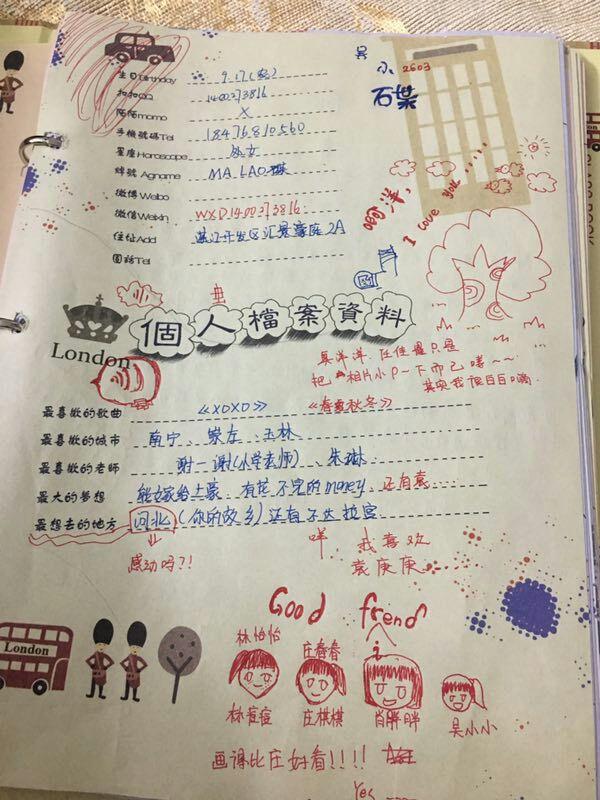 吴
小
2603
石桀
生日birthday 9.17(农)
扣扣QQ 1400273816
陌陌momo X
手機號碼Tel 18476810560
星座Horoscope 处女
綽號 Agname MA.LAO
微博 Weibo
微信Weixin WXD1400273816
住址Add 湛江开发区汇景豪庭2A
固話Tel
洋,
I love you
London
個人檔案資料
吴洋洋,在佳握只是
把相片小P一下而已噻~~
其实我很白白嘀.
最喜歡的歌曲 《XOXO》 《春夏秋冬》
最喜歡的城市 南宁、玉林
最喜歡的老師 谢一谢(小学老师)、朱琳
最大的夢想 能嫁给土豪、有花不完的money,还有
最想去的地方 河北(你的故乡)还有不达拉宫
感动吗?!
咩,我喜欢
袁庚庚
Good frend
i
林怡怡 庄春春
林痘痘 庄棋棋 肖胖胖 吴小小
London
画得比庄好看!!!!
Yes